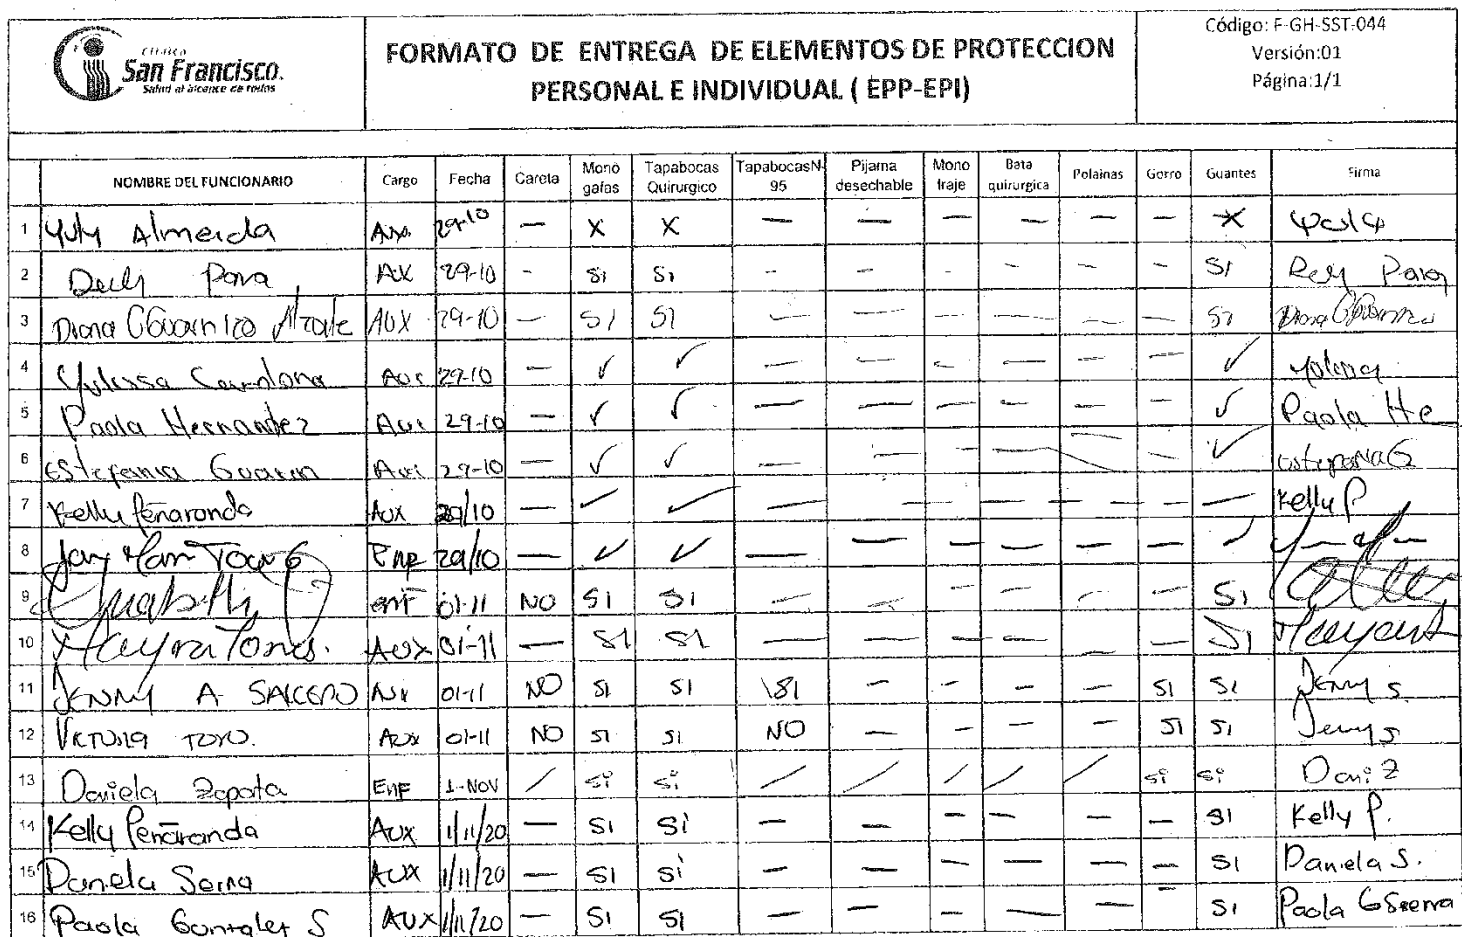 CLINICA
San Francisco.
Salud al alcance de todos
FORMATO DE ENTREGA DE ELEMENTOS DE PROTECCION
PERSONAL E INDIVIDUAL ( EPP-EPI)
Código: F-GH-SST-044
Versión:01
Página:1/1
NOMBRE DEL FUNCIONARIO Cargo Fecha Careta Mono gafas Tapabocas Quirurgico TapabocasN-95 Pijama desechable Mono traje Bata quirurgica Polainas Gorro Guantes Firma
1 Yuly Almeida Aux 29-10 — X X — — — — — — X
2 Pava AX 29-10 - Si Si - - - - - - SI Pava
3 Diana AUX 29-10 — SI SI — — — — — — SI Diana
4 Aux 29-10 — ✓ ✓ — — — — — — ✓
5 Paola Hernandez Aux 29-10 — ✓ ✓ — — — — — — ✓ Paola He
6 Estefania Guarin Aux 29-10 — ✓ ✓ — — — — — — ✓ estefania G
7 Kelly Peñaranda Aux 29/10 — ✓ ✓ — — — — — — — Kelly P
8 Enf 29/10 — ✓ ✓ — — — — — — ✓
9 enf 01-11 NO SI SI — — — — — — SI
10 Mayra Torres. Aux 01-11 — SI SI — — — — — — SI
11 JENNY A. SALCEDO Aux 01-11 NO SI SI SI — — — — SI SI Jenny S.
12 VICTORIA TORO. Aux 01-11 NO SI SI NO — — — — SI SI Jenny S
13 Daniela Zapata Enf 1-NOV / Si Si / / / / / Si Si Dani Z
14 Kelly Peñaranda Aux 1/11/20 — SI Si — — — — — — SI Kelly P.
15 Daniela Aux 1/11/20 — SI Si — — — — — — SI Daniela S.
16 Paola Gonzalez S AUX 1/11/20 — SI SI — — — — — — SI Paola G Sierra